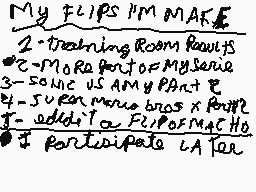 My FLIPS I'M MAKE
1-training Room Results
2-MORE Part OF MY Serie
3-SONIC VS AMY PArt 2
4-SUPER Mario bros x Part 2
5- edidit a FLIP OF MACHO
I Partisipate LATer